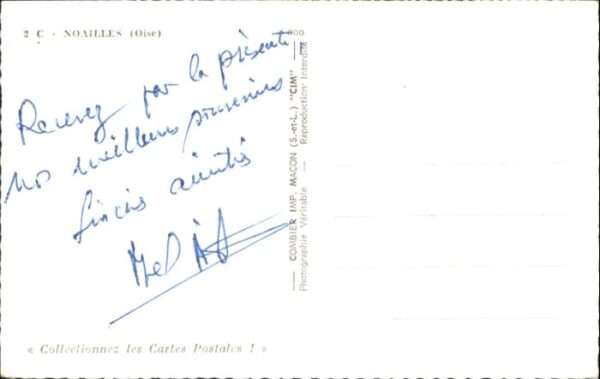 2 C - NOAILLES (Oise)
Recevez par la présente
nos meilleurs souvenirs
sincères amitiés
« Collectionnez les Cartes Postales ! »
COMBIER IMP. MACON (S.-et-L.) "CIM"
Photographie Véritable - Reproduction Interdite